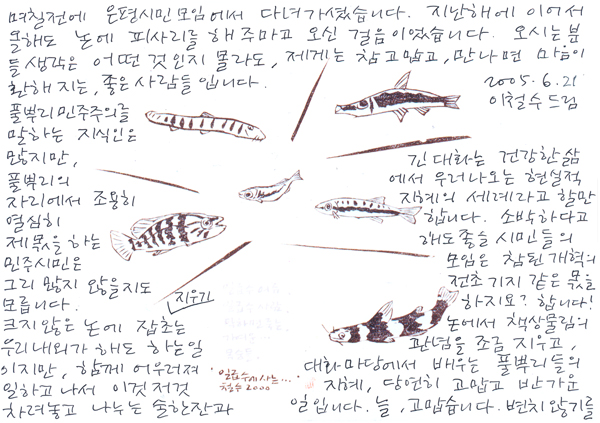 며칠전에 은평시민모임에서 다녀가셨습니다. 지난해에 이어서
올해도 논에 피사리를 해 주마고 오신 걸음이었습니다. 오시는 분
들 생각은 어떤 것인지 몰라도, 제게는 참 고맙고, 만나면 마음이
환해 지는, 좋은 사람들입니다.
2005. 6. 21
이철수 드림
풀뿌리 민주주의를
말하는 지식인은
많지만,
풀뿌리의
자리에서 조용히
열심히
제 몫을 하는
민주시민은
그리 많지 않을지도
모릅니다.
지우기
크지않은 논에 잡초는
우리내외가 해도 하는일
이지만, 함께 어우러져
일하고 나서 이것 저것
차려놓고 나누는 술한잔과
긴 대화는 건강한 삶
에서 우러나오는 현실적
지혜의 세례라고 할만
합니다. 소박하다고
해도 좋을 시민들의
모임은 참된 개혁의
전초기지 같은 몫을
하지요? 합니다!
논에서 책상물림의
관념을 조금 지우고,
대화마당에서 배우는 풀뿌리들의
지혜, 당연히 고맙고 반가운
일입니다. 늘, 고맙습니다. 변치 않기를